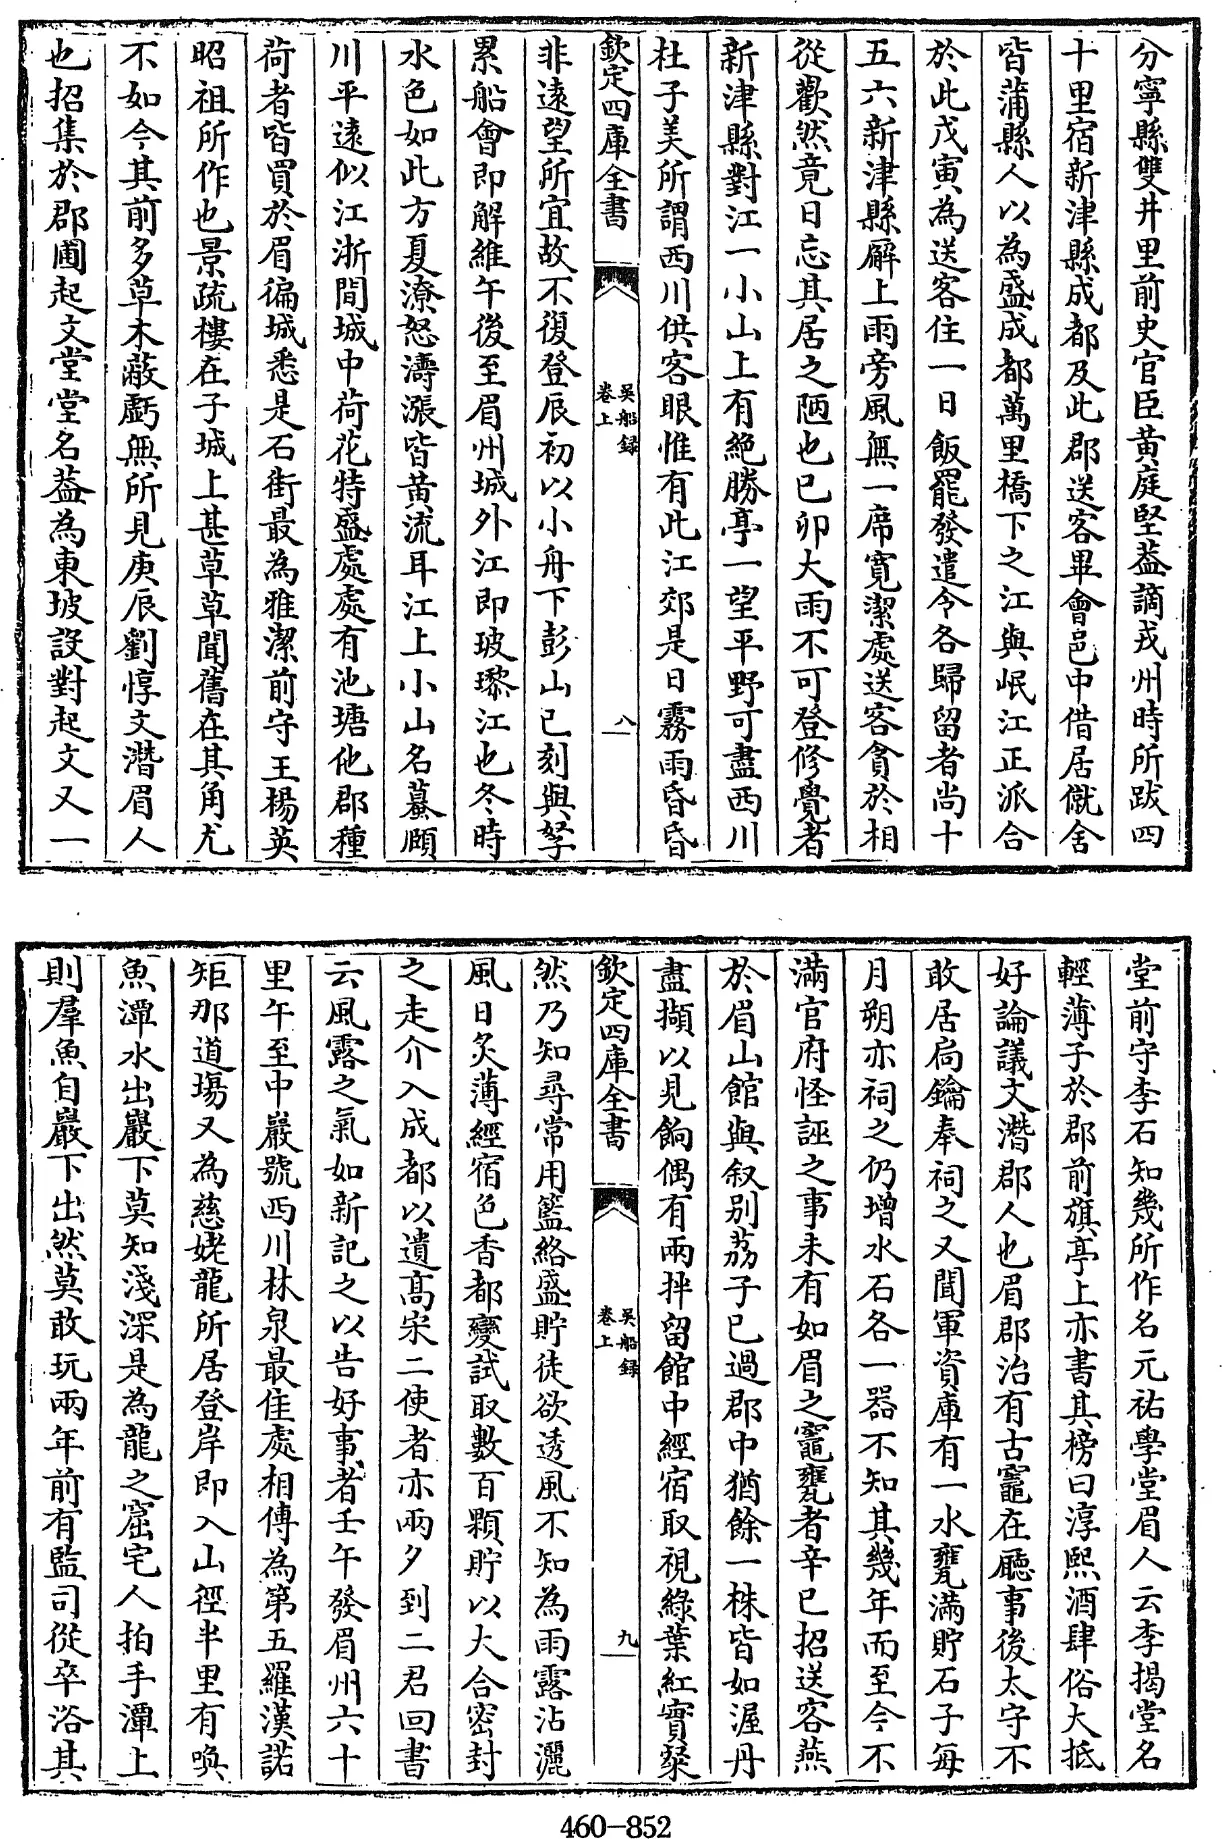 分寧縣雙井里前史官臣黄庭堅葢謫戎州時所跋四
十里宿新津縣成都及此郡送客畢會邑中借居僦舍
皆蒲縣人以為盛成都萬里橋下之江與岷江正派合
於此戊寅為送客住一日飯罷發遣令各歸留者尚十
五六新津縣廨上雨旁風無一席寛潔處送客貪於相
從歡然竟日忘其居之陋也已卯大雨不可登修覺者
新津縣對江一小山上有絶勝亭一望平野可盡西川
杜子美所謂西川供客眼惟有此江郊是日霧雨昏昏
欽定四庫全書
吳船録
卷上
八
非遠望所宜故不復登辰初以小舟下彭山已刻與孥
累船會即解維午後至眉州城外江即玻瓈江也冬時
水色如此方夏潦怒濤漲皆黄流耳江上小山名蟇頤
川平遠似江浙間城中荷花特盛處處有池塘他郡種
荷者皆買於眉徧城悉是石街最為雅潔前守王楊英
昭祖所作也景疏樓在子城上甚草草聞舊在其角尤
不如今其前多草木蔽虧無所見庚辰劉惇文潛眉人
也招集於郡圃起文堂堂名葢為東坡設對起文又一
堂前守李石知幾所作名元祐學堂眉人云李揭堂名
輕薄子於郡前旗亭上亦書其榜曰淳熙酒肆俗大抵
好論議文潛郡人也眉郡治有古竈在廳事後太守不
敢居扄鑰奉祠之又聞軍資庫有一水甕滿貯石子每
月朔亦祠之仍增水石各一器不知其幾年而至今不
滿官府怪誣之事未有如眉之竈甕者辛巳招送客燕
於眉山館與叙别荔子已過郡中猶餘一株皆如渥丹
盡擷以見餉偶有兩拌留館中經宿取視緑葉紅實粲
欽定四庫全書
吳船録
卷上
九
然乃知尋常用籃絡盛貯徒欲透風不知為雨露沾灑
風日炙薄經宿色香都變試取數百顆貯以大合密封
之走介入成都以遺高宋二使者亦兩夕到二君回書
云風露之氣如新記之以告好事者壬午發眉州六十
里午至中巖號西川林泉最佳處相傳為第五羅漢諾
矩那道塲又為慈姥龍所居登岸即入山徑半里有喚
魚潭水出巖下莫知淺深是為龍之窟宅人拍手潭上
則羣魚自巖下出然莫敢玩兩年前有監司從卒浴其
460-852